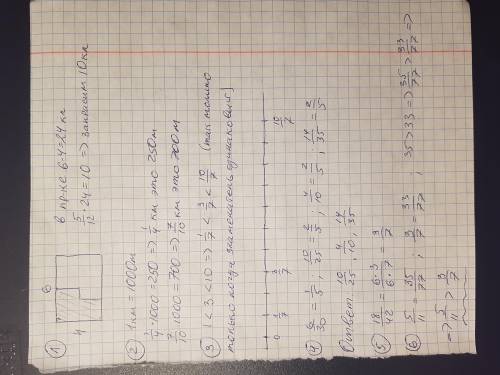 ① 6 4 в пр-ке 6·4=24 кл
5/12·24=10 => занимает 10 кл
② 1 км = 1000 м
1/4·1000=250 => 1/4 км это 250 м
7/10·1000=700 => 7/10 км это 700 м
③ 1<3<10 => 1/7 < 3/7 < 10/7 (так только
только когда знаменатель одинаковый)
0 1/7 3/7 10/7
④ 6/30 = 1/5 ; 10/25 = 2/5 ; 4/10 = 2/5 ; 14/35 = 2/5
Ответ: 10/25, 4/10, 14/35
⑤ 18/42 = 6·3/6·7 = 3/7
⑥ 5/11 = 35/77 ; 3/7 = 33/77 ; 35>33 => 35/77 > 33/77 =>
=> 5/11 > 3/7